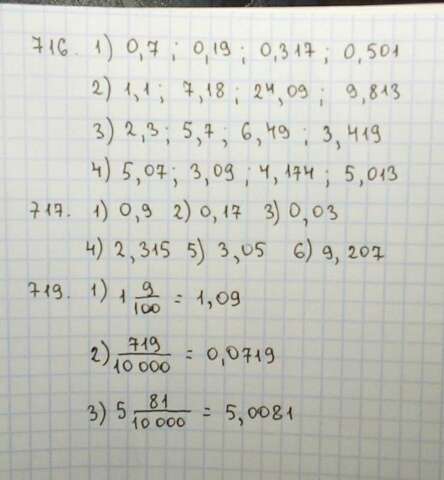 716. 1) 0,7 ; 0,19 ; 0,317 ; 0,501
2) 1,1 ; 7,18 ; 24,09 ; 9,813
3) 2,3 ; 5,7 ; 6,49 ; 3,419
4) 5,07 ; 3,09 ; 4,174 ; 5,013
717. 1) 0,9 2) 0,17 3) 0,03
4) 2,315 5) 3,05 6) 9,207
719. 1) 1 9/100 = 1,09
2) 719/10 000 = 0,0719
3) 5 81/10 000 = 5,0081